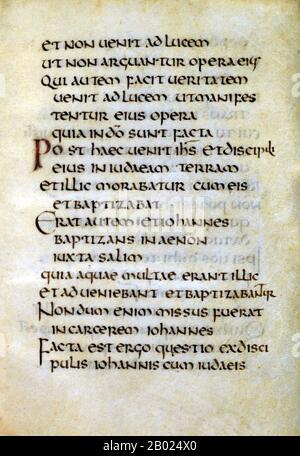 et non uenit ad lucem
ut non arguantur opera eius
Qui autem facit ueritatem
uenit ad lucem ut manifes
tentur eius opera
quia in do sunt facta
Post haec uenit ihs et discipuli
eius in iudaeam terram
et illic morabatur cum eis
et baptizabat
Erat autem et iohannes
baptizans in aenon
iuxta salim
quia aquae multae erant illic
et adueniebant et baptizabantur
Nondum enim missus fuerat
in carcerem iohannes
Facta est ergo questio ex disci
pulis iohannis cum iudaeis
a alamy
alamy
Image ID: 2B024X0
www.alamy.com